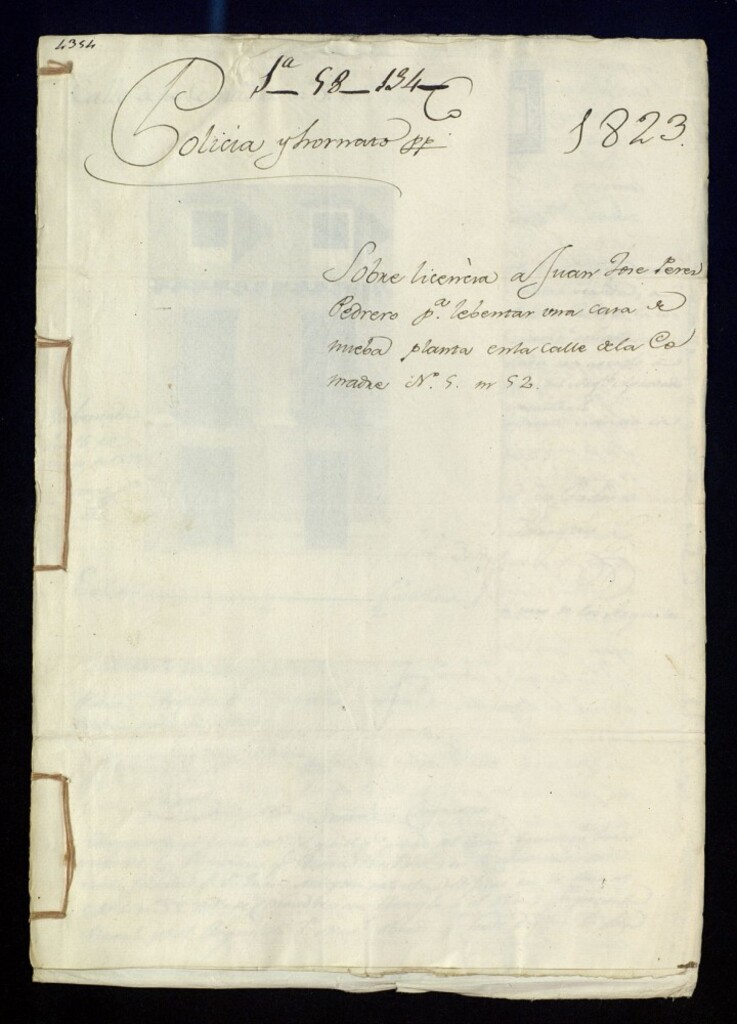 4354
1ª 58 134
Policia y hornato pp.
1823.
Sobre licencia a Juan Jose Perez
Pedrero pª. lebentar una casa de
nueba planta enla calle dela Co
madre Nº. 5. m 52.